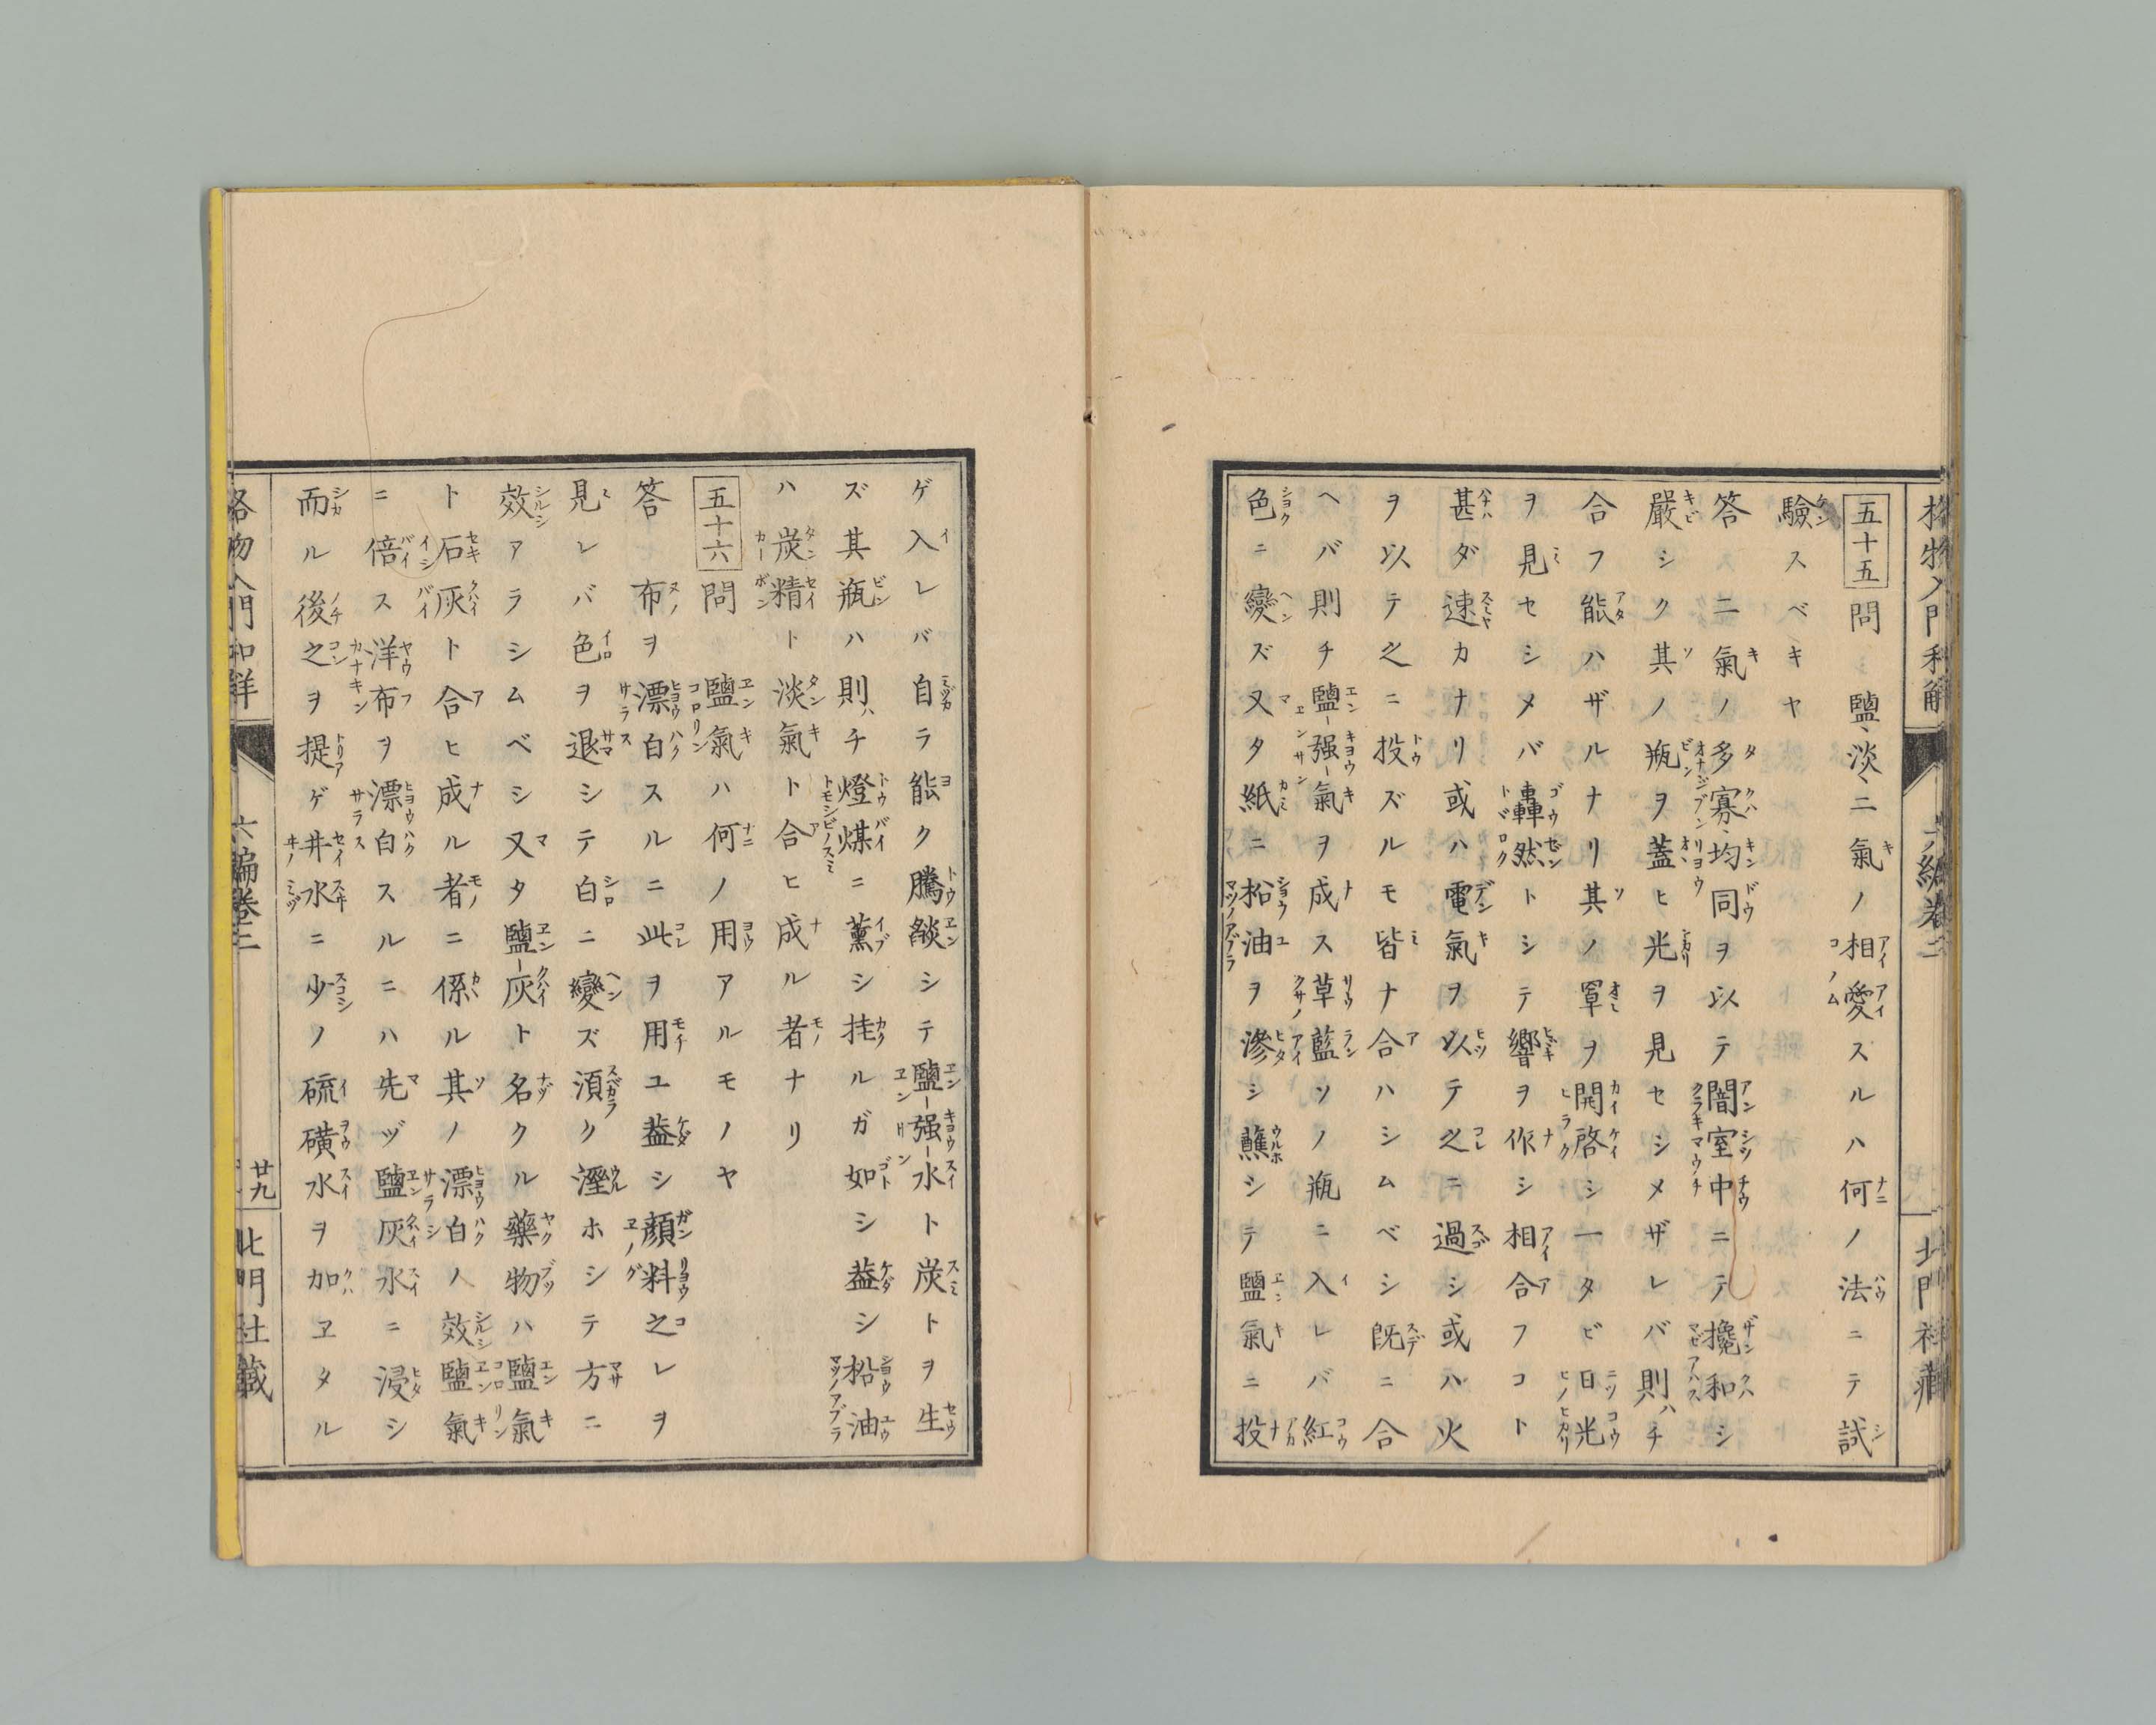 格物入門和解 六編卷三 北門社藏
五十五 問 鹽、淡、二氣ノ相愛スルハ何ノ法ニテ試
驗スベキヤ
答 二氣ノ多寡、均同ヲ以テ闇室中ニテ攙和シ
嚴シク其ノ瓶ヲ蓋ヒ光ヲ見セシメザレバ則チ
合フ能ハザルナリ其ノ罩ヲ開啓シ一タビ日光
ヲ見セシメバ轟然トシテ響ヲ作シ相合フコト
甚ダ速カナリ或ハ電氣ヲ以テ之ニ過シ或ハ火
ヲ以テ之ニ投ズルモ皆ナ合ハシムベシ既ニ合
ヘバ則チ鹽強氣ヲ成ス草藍ソノ瓶ニ入レバ紅
色ニ變ズ又タ紙ニ松油ヲ滲シ蘸シテ鹽氣ニ投
ゲ入レバ自ラ能ク騰燄シテ鹽強水ト炭トヲ生
ズ其瓶ハ則チ燈煤ニ薰シ挂ルガ如シ葢シ松油
ハ炭精ト淡氣ト合ヒ成ル者ナリ
五十六 問 鹽氣ハ何ノ用アルモノヤ
答 布ヲ漂白スルニ此ヲ用ユ葢シ顔料之レヲ
見レバ色ヲ退シテ白ニ變ズ須ク溼ホシテ方ニ
效アラシムベシ又タ鹽灰ト名クル藥物ハ鹽氣
ト石灰ト合ヒ成ル者ニ係ル其ノ漂白ノ效鹽氣
ニ倍ス洋布ヲ漂白スルニハ先ヅ鹽灰水ニ浸シ
而ル後之ヲ提ゲ井水ニ少ノ硫磺水ヲ加ヱタル
格物入門和解 六編卷三 廿九 北門社藏